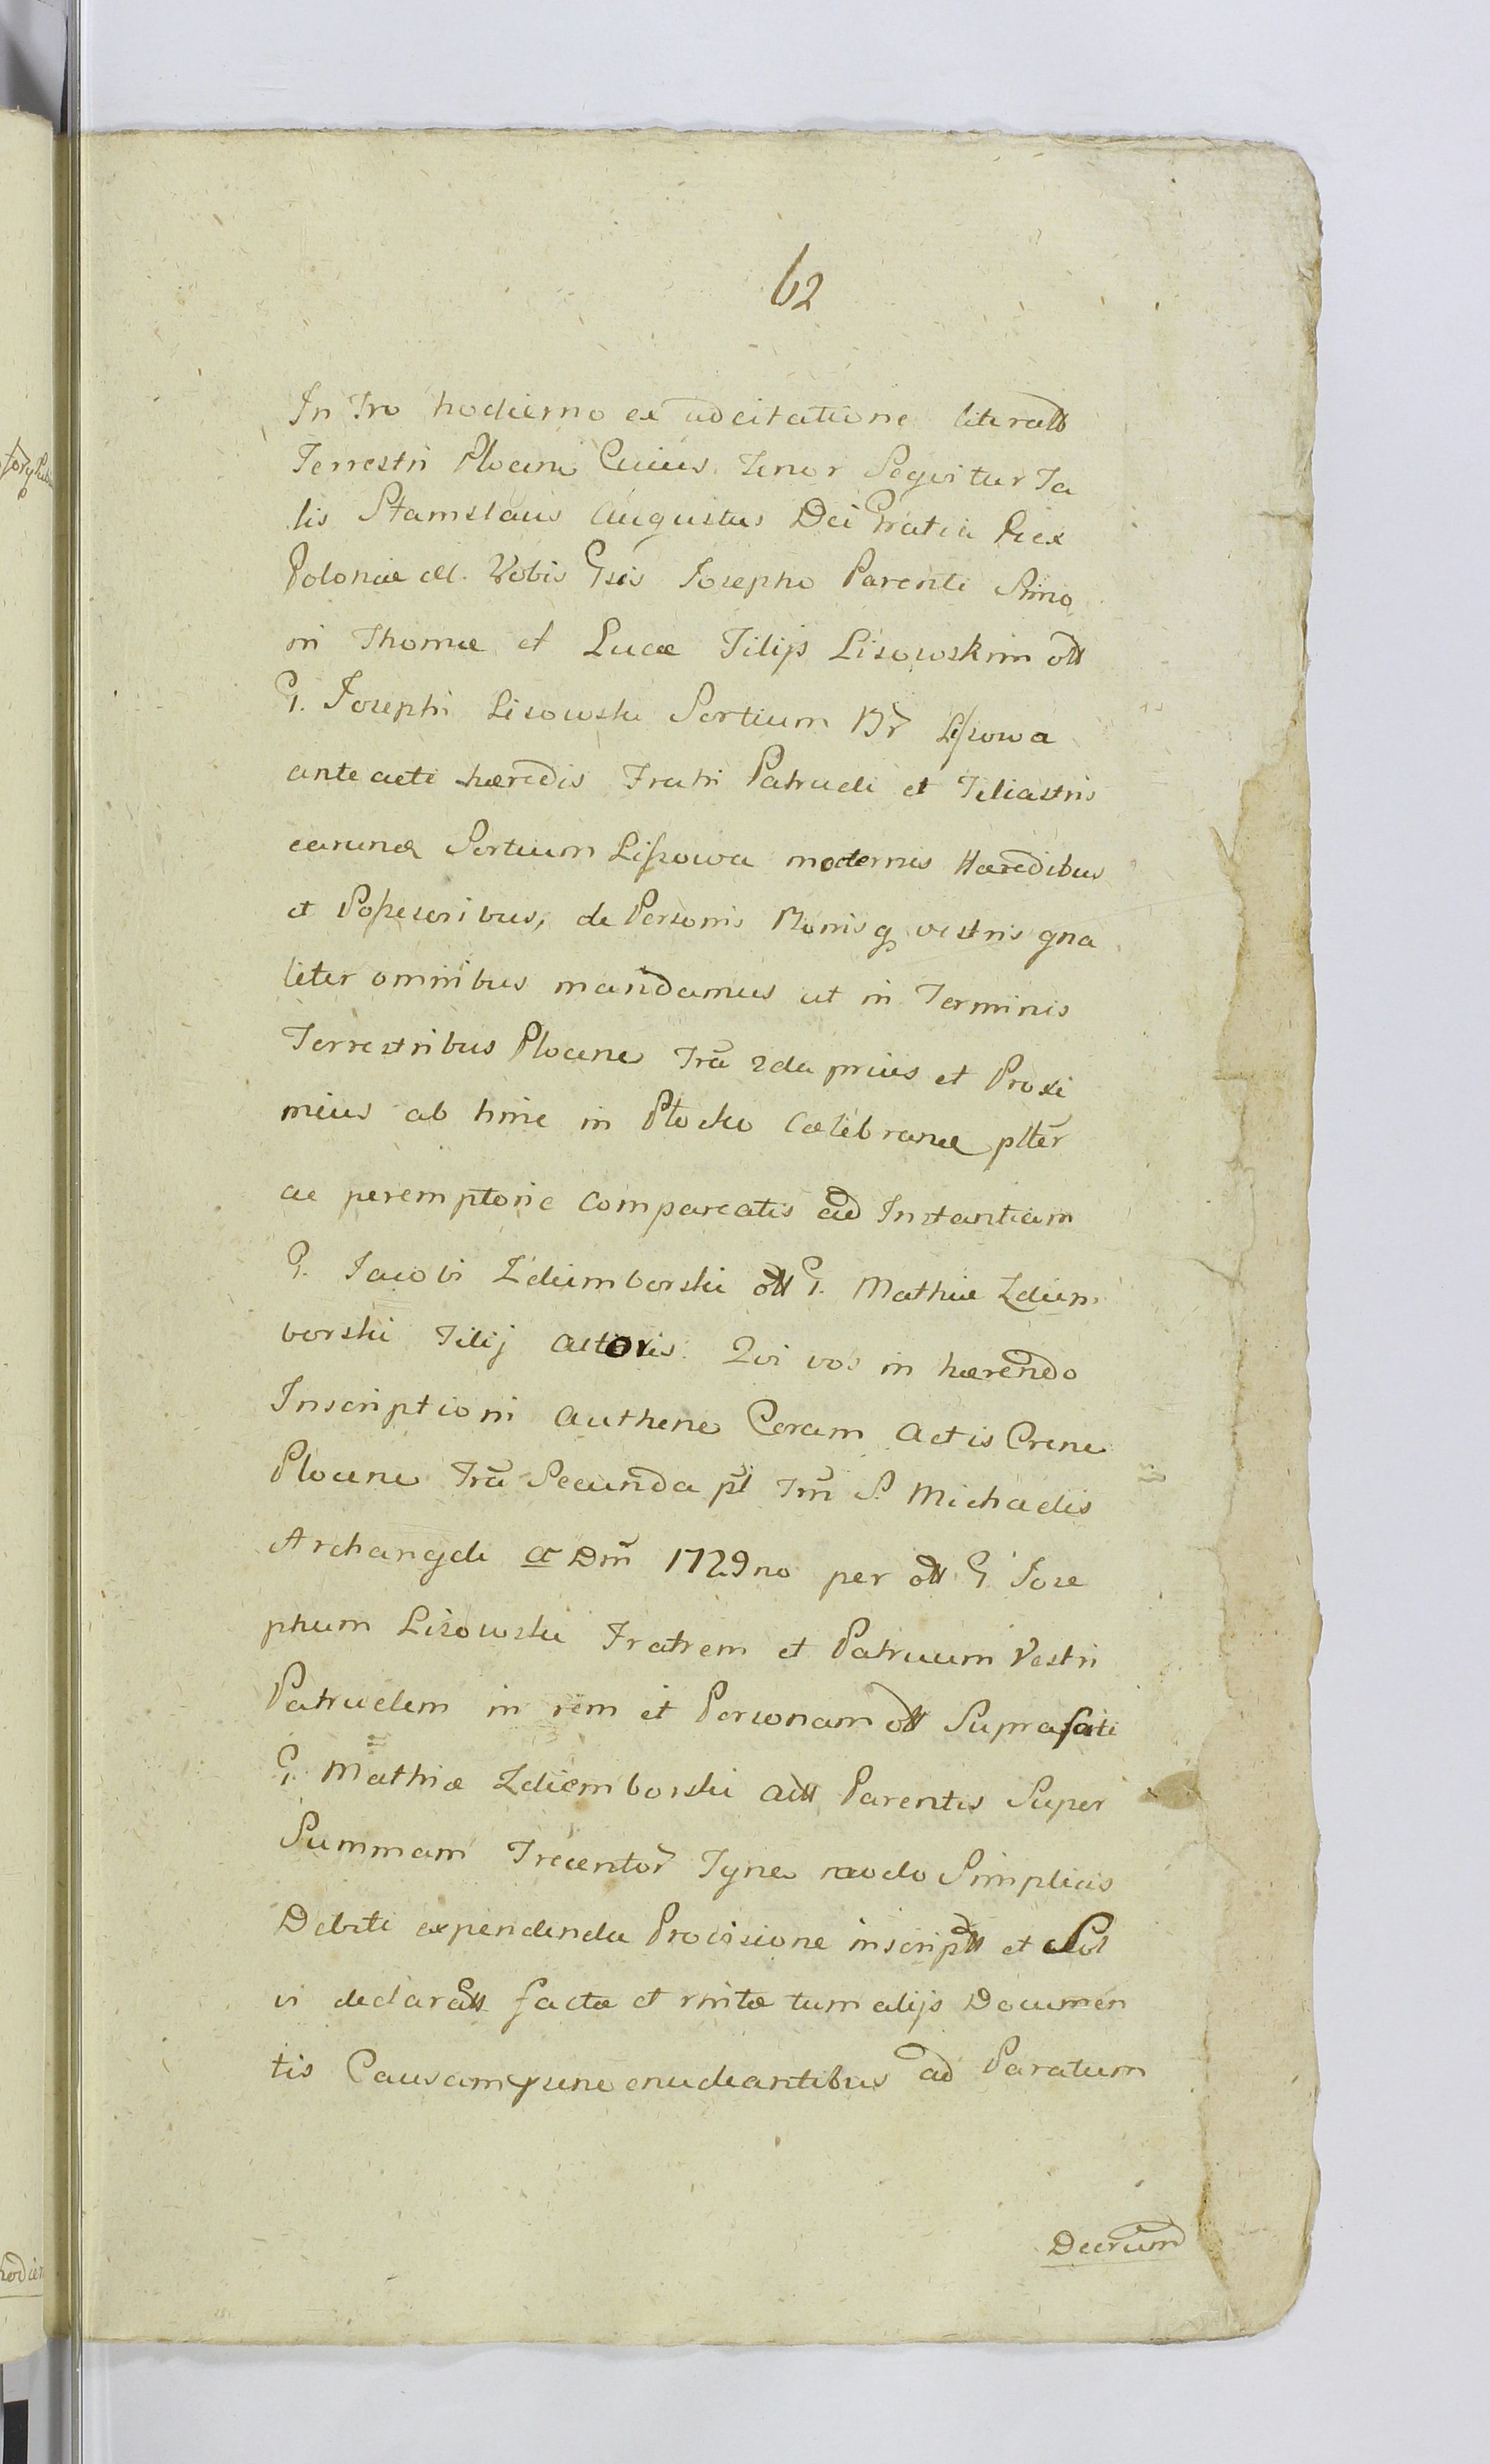 62
In Tro hodierno ex adcitatione literall
Terrestri Plocen Cuius Tenor Seqvitur Ta
lis Stanislaus Augustus Dei Gratia Rex
Poloniæ etc. Vobis Gsis Josepho Parenti
ni Thomæ et Lucæ Filijs Lisowskim oll
G. Josephi Lisowski Sortium Br Lissowa
ante acti hæredis Fratri Patrueli et Filiastris
earund Sortium Lissowa modernis Hæredibus
et Possesoribus, de Personis Bonisq vestris gna
liter omnibus mandamus ut in Terminis
Terrestribus Plocen Fra 2da prius et Proxi
mius ab hinc in Plocko Cælebrane plter
ac peremptorie compareatis ad Instantiam
G. Jacobi Zdiemborski oll G. Mathiæ Zdiem
borski Filij Actoris. Qvi vos in hærendo
Inscriptioni Authene Coram Actis Crene
Plocene Fra Secunda pt Fm S. Michaelis
Archangeli A Dni 1729no per oll G Jose
phum Lisowski Fratrem et Patruum Vestri
Patruelem in rem et Personam oll Suprafati
G. Mathiæ Zdiemborski Acll Parentis Super
Summam Trecentor Tyne modo Simplicis
Debiti expendenda Provisione inscripll et Sol
vi declarall factæ et rntæ tum alijs Documen
tis Causam pune enucleantibus ad Paratum
Decrum